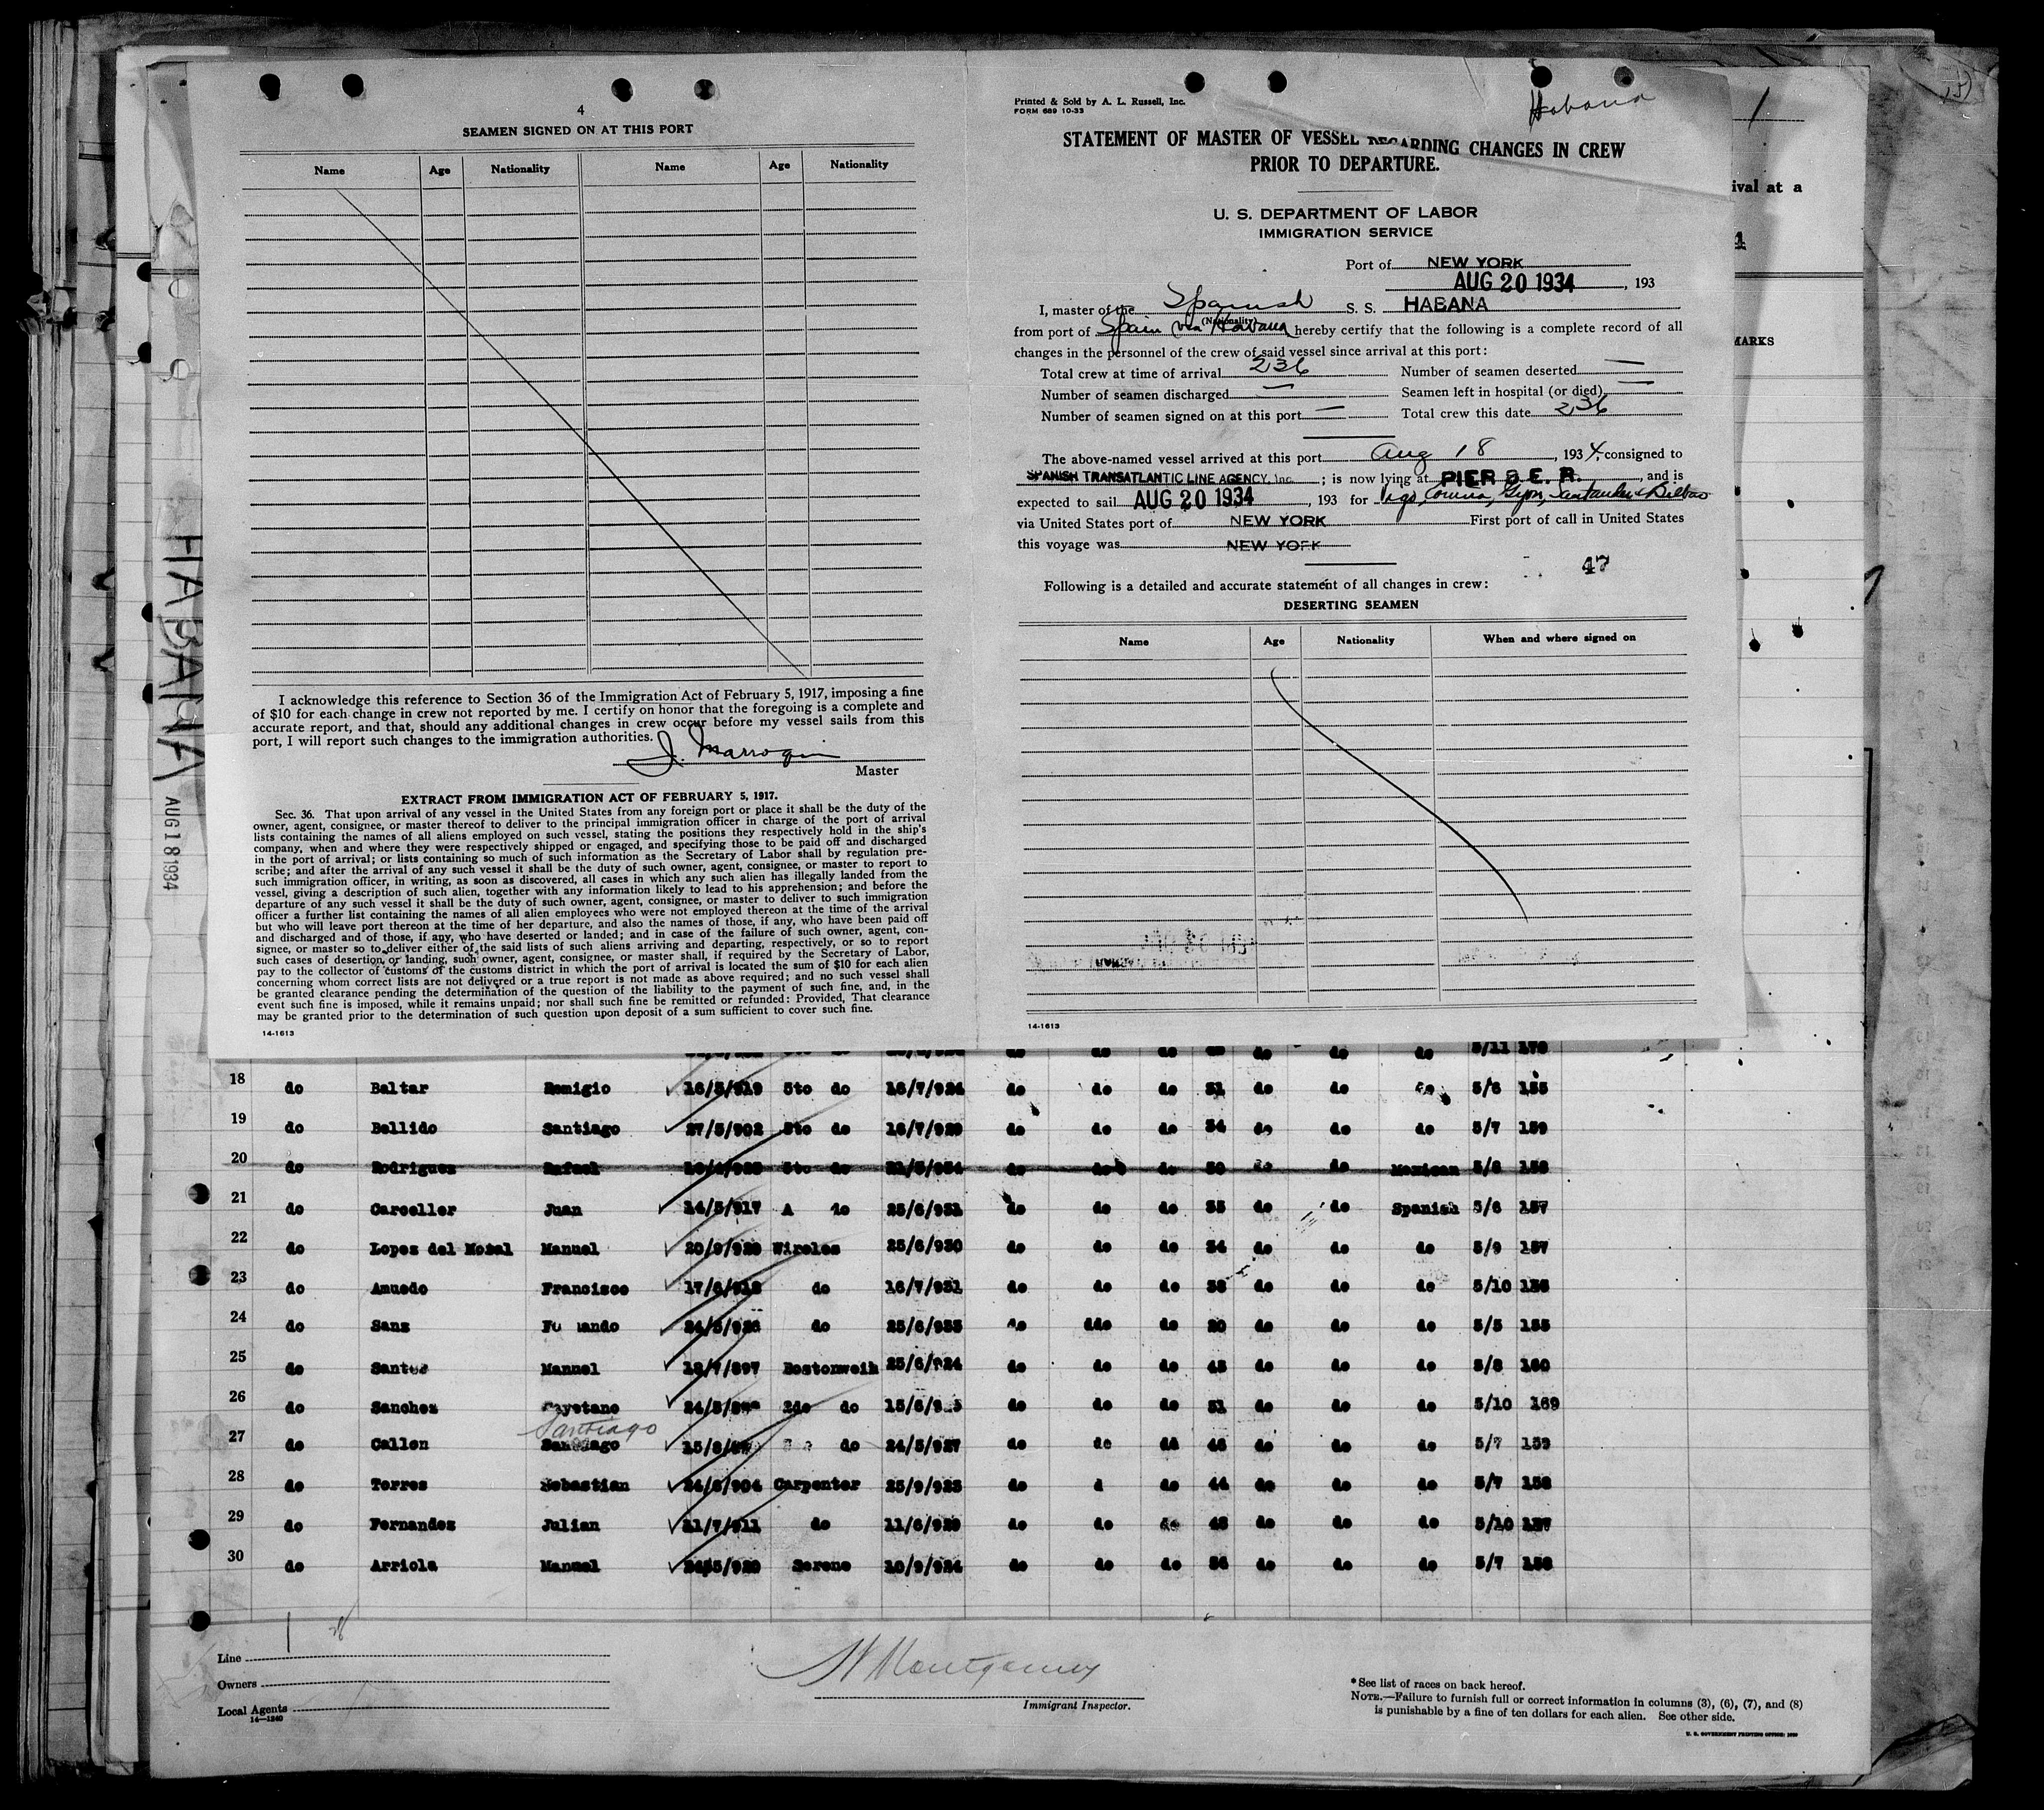 4
SEAMEN SIGNED ON AT THIS PORT
Name Age Nationality Name Age Nationality
I acknowledge this reference to Section 36 of the Immigration Act of February 5, 1917, imposing a fine
of $10 for each change in crew not reported by me. I certify on honor that the foregoing is a complete and
accurate report, and that, should any additional changes in crew occur before my vessel sails from this
port, I will report such changes to the immigration authorities.
J. Marroquin
Master
EXTRACT FROM IMMIGRATION ACT OF FEBRUARY 5, 1917.
Sec. 36. That upon arrival of any vessel in the United States from any foreign port or place it shall be the duty of the
owner, agent, consignee, or master thereof to deliver to the principal immigration officer in charge of the port of arrival
lists containing the names of all aliens employed on such vessel, stating the positions they respectively hold in the ship's
company, when and where they were respectively shipped or engaged, and specifying those to be paid off and discharged
in the port of arrival; or lists containing so much of such information as the Secretary of Labor shall by regulation pre-
scribe; and after the arrival of any such vessel it shall be the duty of such owner, agent, consignee, or master to report to
such immigration officer, in writing, as soon as discovered, all cases in which any such alien has illegally landed from the
vessel, giving a description of such alien, together with any information likely to lead to his apprehension; and before the
departure of any such vessel it shall be the duty of such owner, agent, consignee, or master to deliver to such immigration
officer a further list containing the names of all alien employees who were not employed thereon at the time of the arrival
but who will leave port thereon at the time of her departure, and also the names of those, if any, who have been paid off
and discharged and of those, if any, who have deserted or landed; and in case of the failure of such owner, agent, con-
signee, or master so to deliver either of the said lists of such aliens arriving and departing, respectively, or so to report
such cases of desertion or landing, such owner, agent, consignee, or master shall, if required by the Secretary of Labor,
pay to the collector of customs of the customs district in which the port of arrival is located the sum of $10 for each alien
concerning whom correct lists are not delivered or a true report is not made as above required; and no such vessel shall
be granted clearance pending the determination of the question of the liability to the payment of such fine, and, in the
event such fine is imposed, while it remains unpaid; nor shall such fine be remitted or refunded: Provided, That clearance
may be granted prior to the determination of such question upon deposit of a sum sufficient to cover such fine.
14-1613
Printed & Sold by A. L. Russell, Inc.
FORM 689 10-33
Habana
1
STATEMENT OF MASTER OF VESSEL REGARDING CHANGES IN CREW
PRIOR TO DEPARTURE.
U. S. DEPARTMENT OF LABOR
IMMIGRATION SERVICE
Port of NEW YORK
AUG 20 1934, 193
I, master of the Spanish S. S. HABANA
(Nationality)
from port of Spain via Habana hereby certify that the following is a complete record of all
changes in the personnel of the crew of said vessel since arrival at this port:
Total crew at time of arrival 236 Number of seamen deserted —
Number of seamen discharged — Seamen left in hospital (or died) —
Number of seamen signed on at this port — Total crew this date 236
The above-named vessel arrived at this port Aug 18, 1934, consigned to
SPANISH TRANSATLANTIC LINE AGENCY, Inc.; is now lying at PIER 8 E. R., and is
expected to sail AUG 20 1934, 193 for Vigo, Coruna, Gijon, Santander & Bilbao
via United States port of NEW YORK First port of call in United States
this voyage was NEW YORK
47
Following is a detailed and accurate statement of all changes in crew:
DESERTING SEAMEN
Name Age Nationality When and where signed on
14-1613
ival at a
MARKS
HABANA
AUG 18 1934
18 do Baltar Remigio 16/5/919 5to do 16/7/924 do do do 31 do do do 5/6 155
19 do Bellido Santiago 27/5/902 5to do 16/7/929 do do do 34 do do do 5/7 159
20 do Rodriguez Rafael 5to do 21/5/934 do do do 30 do do Mexican 5/8 158
21 do Carceller Juan 14/5/917 A do 25/6/931 do do do 35 do do Spanish 5/6 157
22 do Lopez del Moral Manuel 20/9/929 Wireles 25/6/930 do do do 34 do do do 5/9 157
23 do Amuedo Francisco 17/6/918 do 16/7/931 do do do 38 do do do 5/10 156
24 do Sanz Fernando 24/5/926 do 25/6/933 do ddo do 20 do do do 5/5 155
25 do Santos Manuel 18/7/897 Bostonweih 25/6/924 do do do 45 do do do 5/8 160
26 do Sanchez Cayetano 2do do do do do 51 do do do 5/10 169
Santiago
27 do Callon Santiago do 24/5/927 do do do 46 do do do 5/7 159
28 do Torres Sebastian 24/5/904 Carpenter 25/9/923 do d do 44 do do do 5/7 158
29 do Fernandez Julian 21/7/911 do 11/6/929 do do do 45 do do do 5/10 157
30 do Arriola Manuel Sereno 10/9/924 do do do 54 do do do 5/7 158
Line
Owners
Local Agents
14—1240
Montgomery
Immigrant Inspector.
*See list of races on back hereof.
NOTE.—Failure to furnish full or correct information in columns (3), (6), (7), and (8)
is punishable by a fine of ten dollars for each alien. See other side.